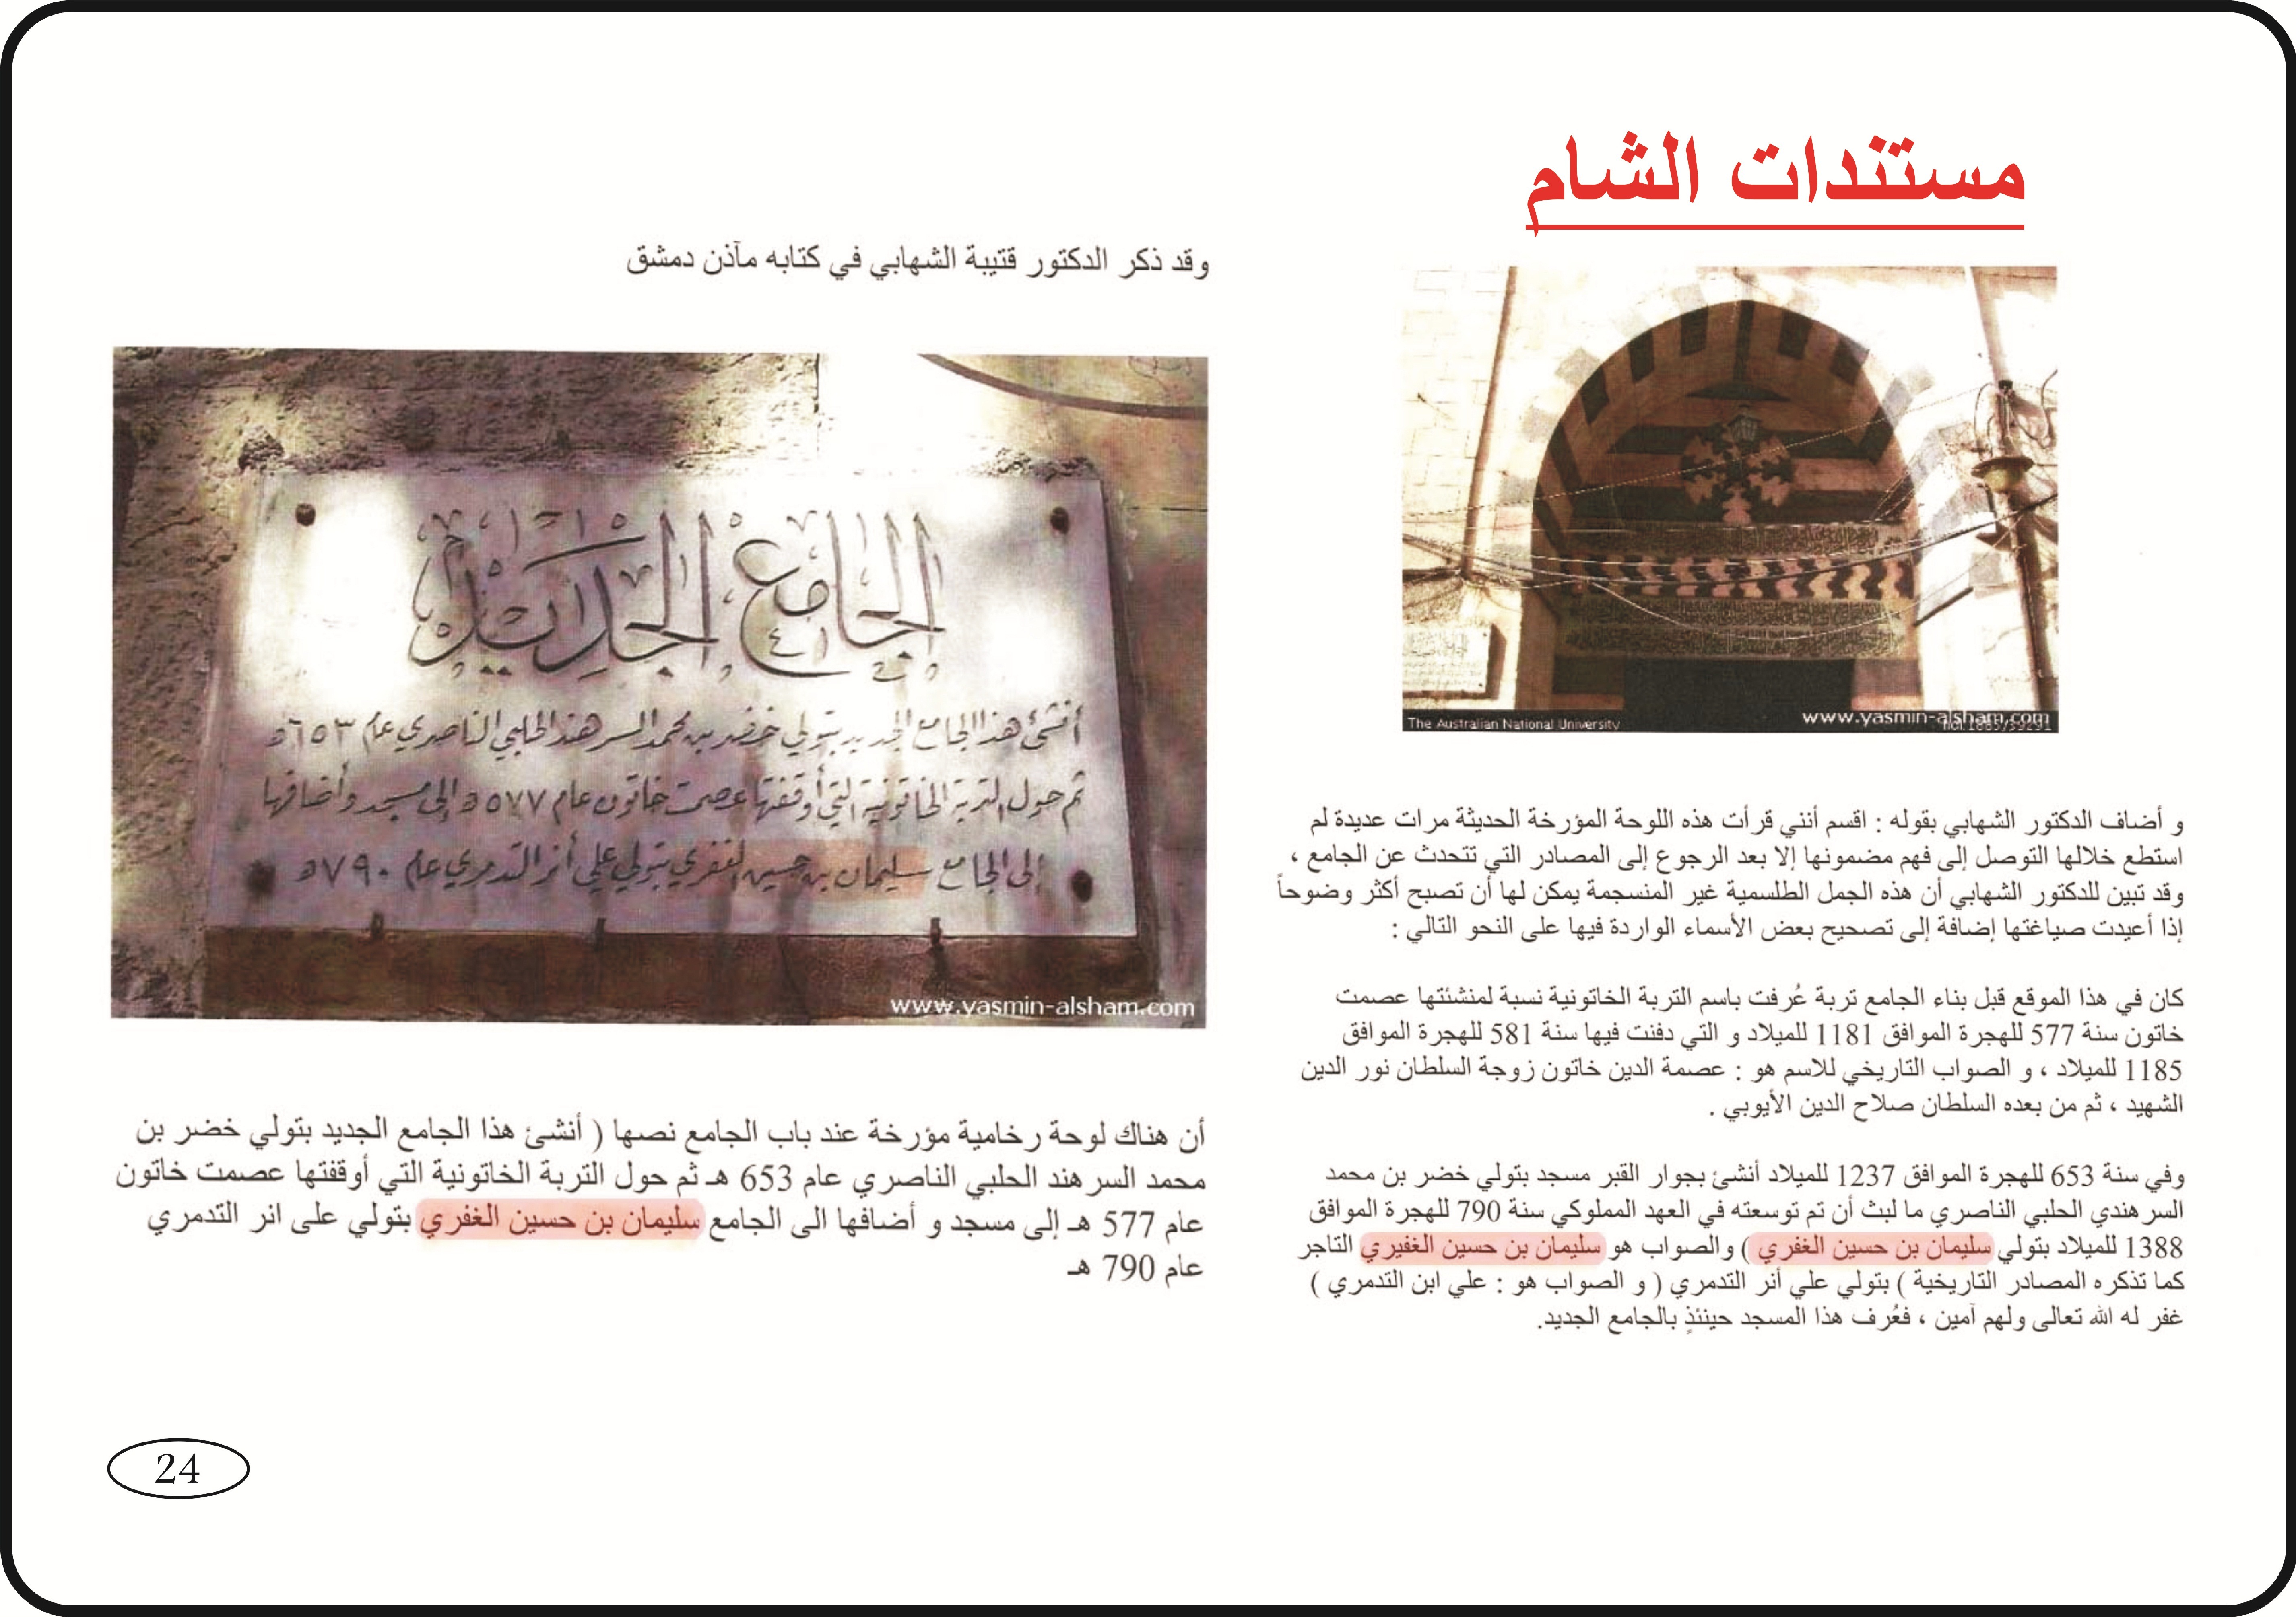 مستندات الشام
The Australian National University
www.yasmin-alsham.com
و أضاف الدكتور الشهابي بقوله : اقسم أنني قرأت هذه اللوحة المؤرخة الحديثة مرات عديدة لم
استطع خلالها التوصل إلى فهم مضمونها إلا بعد الرجوع إلى المصادر التي تتحدث عن الجامع ،
وقد تبين للدكتور الشهابي أن هذه الجمل الطلسمية غير المنسجمة يمكن لها أن تصبح أكثر وضوحاً
إذا أعيدت صياغتها إضافة إلى تصحيح بعض الأسماء الواردة فيها على النحو التالي :
كان في هذا الموقع قبل بناء الجامع تربة عُرفت باسم التربة الخاتونية نسبة لمنشئتها عصمت
خاتون سنة 577 للهجرة الموافق 1181 للميلاد و التي دفنت فيها سنة 581 للهجرة الموافق
1185 للميلاد ، و الصواب التاريخي للاسم هو : عصمة الدين خاتون زوجة السلطان نور الدين
الشهيد ، ثم من بعده السلطان صلاح الدين الأيوبي .
وفي سنة 653 للهجرة الموافق 1237 للميلاد أنشئ بجوار القبر مسجد بتولي خضر بن محمد
السرهندي الحلبي الناصري ما لبث أن تم توسعته في العهد المملوكي سنة 790 للهجرة الموافق
1388 للميلاد بتولي سليمان بن حسين الغفري ) والصواب هو سليمان بن حسين الغفيري التاجر
كما تذكره المصادر التاريخية ) بتولي علي أنر التدمري ( و الصواب هو : علي ابن التدمري )
غفر له الله تعالى ولهم آمين ، فعُرف هذا المسجد حينئذٍ بالجامع الجديد.
وقد ذكر الدكتور قتيبة الشهابي في كتابه مآذن دمشق
الجامع الجديد
أنشئ هذا الجامع الجديد بتولي خضر بن محمد السرهند الحلبي الناصري عام ٦٥٣ه
ثم حول التربة الخاتونية التي أوقفتها عصمت خاتون عام ٥٧٧ه إلى مسجد وأضافها
إلى الجامع سليمان بن حسين الغفري بتولي علي أنر التدمري عام ٧٩٠ه
www.yasmin-alsham.com
أن هناك لوحة رخامية مؤرخة عند باب الجامع نصها ( أنشئ هذا الجامع الجديد بتولي خضر بن
محمد السرهند الحلبي الناصري عام 653 هـ ثم حول التربة الخاتونية التي أوقفتها عصمت خاتون
عام 577 هـ إلى مسجد و أضافها الى الجامع سليمان بن حسين الغفري بتولي على انر التدمري
عام 790 هـ
24